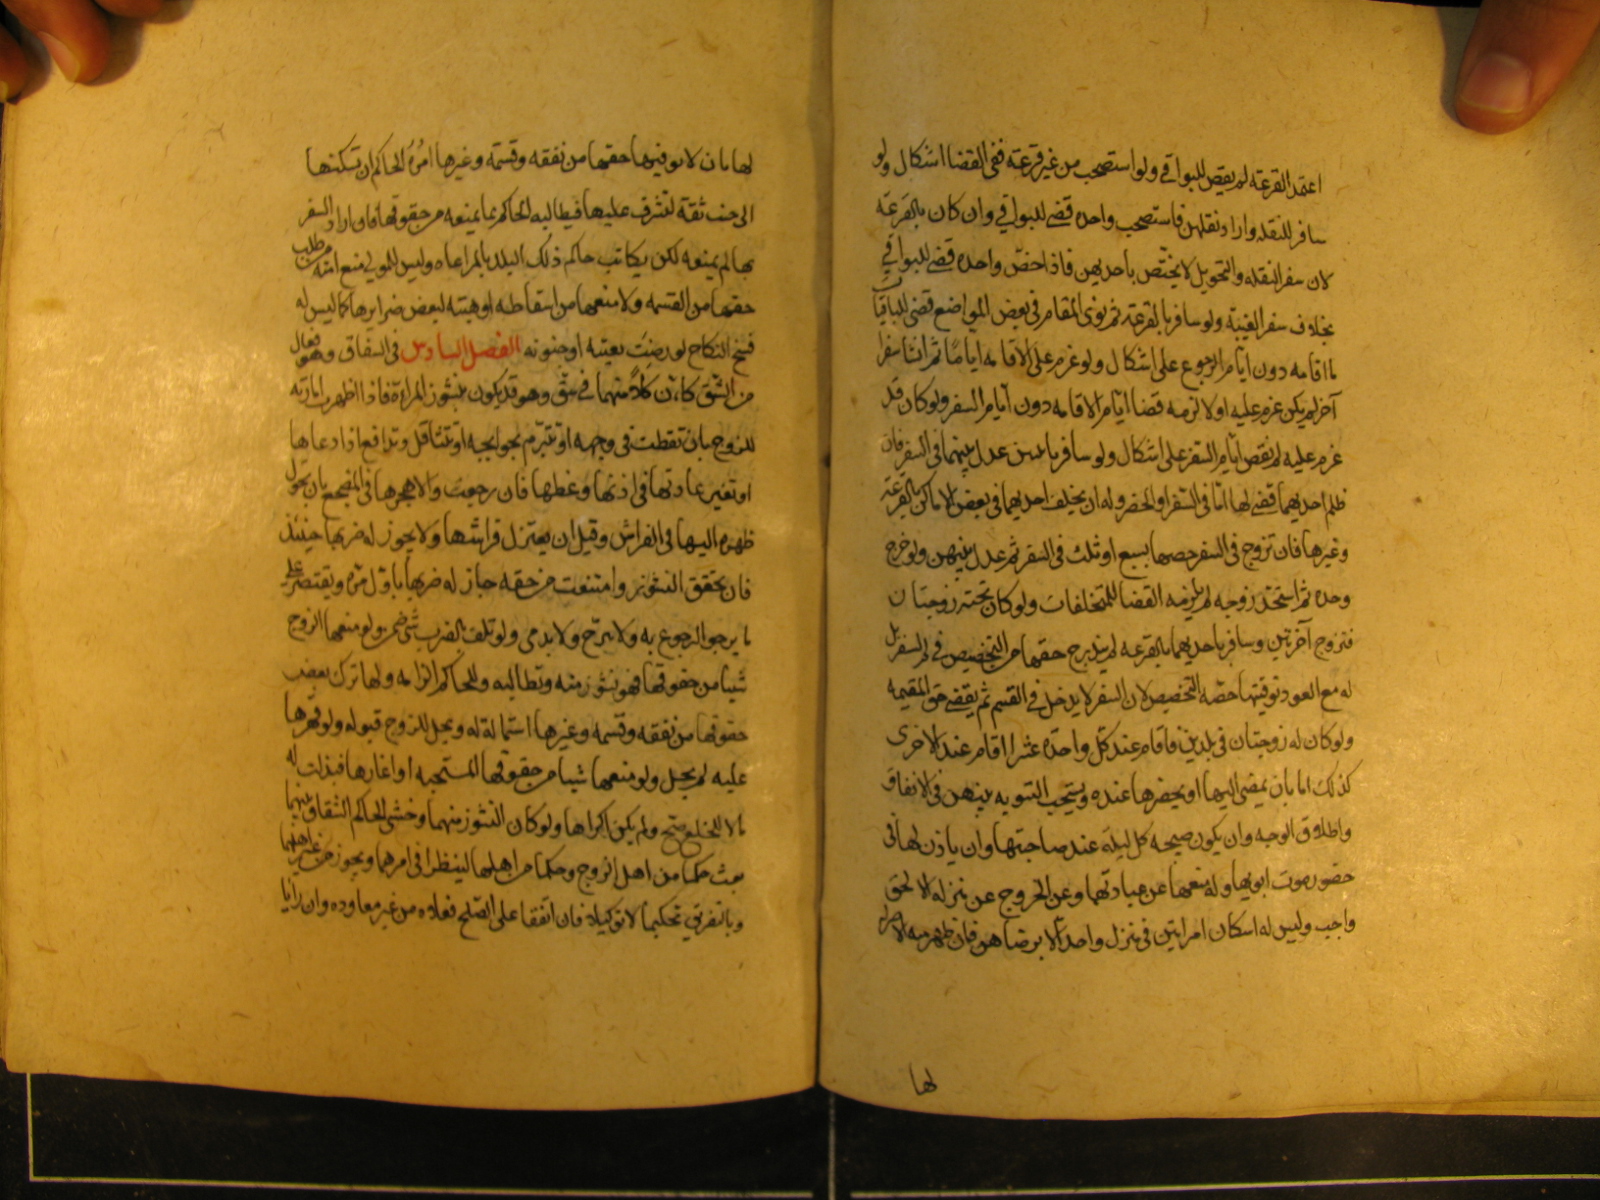 اعتمد القرعة لم يقض للبواقي ولو استصحب من غير قرعة ففي القضا اشكال ولو
سافر للنقله واراد نقلهن فاستصحب واحده قضى للبواقي وان كان بالقرعة
لان سفر النقله والتحويل لا يختص باحديهن فاذا خص واحده قضى للبواقي
بخلاف سفر الغيبة ولو سافر بالقرعة ثم نوى المقام في بعض المواضع قضى للباقيات
ما اقامه دون ايام الرجوع على اشكال ولو عزم على الاقامه اياما ثم انشا سفرا
آخر لم يكن عزم عليه اولا لزمه قضا ايام الاقامه دون ايام السفر ولو كان قد
عزم عليه لم يقض ايام السفر على اشكال ولو سافر باثنتين عدل بينهما في السفر فان
ظلم احديهما قضى لها اما في السفر او الحضر وله ان يخلف احديهما في بعض الاماكن بالقرعة
وغيرها فان تزوج في السفر خصها بسبع او ثلث في السفر ثم عدل بينهن ولو خرج
وحده ثم استجد زوجه لم يلزمه القضا للمتخلفات ولو كان تحته زوجتان
فتزوج آخرتين وسافر باحديهما بالقرعه لم يندرج حقها من التخصيص في السفر بل
له مع العود توفيتها حصه التخصيص لان السفر لا يدخل في القسم ثم يقضى حق المقيمه
ولو كان له زوجتان في بلدين فاقام عند كل واحدة عشرا اقام عند الاخرى
كذلك اما بان يمضي اليها او يحضرها عنده ويستحب التسويه بينهن في الانفاق
واطلاق الوجه وان يكون صبيحه كل ليلة عند صاحبتها وان ياذن لها في
حضور موت ابويها وله منعها عن عيادتهما وعن الخروج عن منزله الا لحق
واجب وليس له اسكان امراتين في منزل واحد الا برضاهن فان ظهر منه الاضرار
لها
لها بان لا يوفيها حقها من نفقه وقسمة وغيرها امره الحاكم ان تسكنها
الى جنب ثقة لتشرف عليها فيطالبه الحاكم بما يمنعه من حقوقها فان اراد السفر
بها لم يمنعه لكن يكاتب حاكم ذلك البلد بالمراعاه وليس للمولى منع امته من طلب
حقها من القسمه ولا منعها من اسقاطه او هبته لبعض ضرايرها كما ليس له
فسخ النكاح لو رضيت بعنته او جنونه الفصل السادس في الشقاق وهو فعال
من الشق كان كلا منهما في شق وهو قد يكون بنشوز المراة فاذا ظهرت امارته
للزوج بان تقطب في وجهه او تتبرم بحوايجه او تتثاقل وتدافع اذا دعاها
او تغير عادتها في ادبها وعظها فان رجعت والا هجرها في المضجع بان يحول
ظهره اليها في الفراش وقيل ان يعتزل فراشها ولا يجوز له ضربها حينئذ
فان تحقق النشوز وامتنعت من حقه جاز له ضربها باول مره ويقتصر على
ما يرجو الرجوع به ولا يبرح ولا يدمي ولو تلف بالضرب شي ضمن ولو منعها الزوج
شيا من حقوقها فهو نشوز منه وتطالبه وللحاكم الزامه ولها ترك بعض
حقوقها من نفقه وقسمه وغيرها استمالة له ويحل للزوج قبوله ولو قهرها
عليه لم يحل ولو منعها شيا من حقوقها المستحبه او اغارها فبذلت له
مالا للخلع صح ولم يكن اكراها ولو كان النشوز منهما وخشى الحاكم الشقاق بينهما
بعث حكما من اهل الزوج وحكما من اهلها لينظرا في امرهما ويجوز من غير اهلهما
وبالتفريق تحكيما لا توكيلا فان اتفقا على الصلح فعلاه من غير معاوده وان رايا